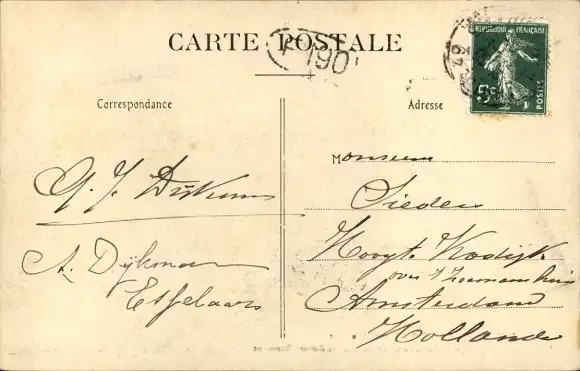 CARTE POSTALE
190
RÉPUBLIQUE FRANÇAISE
5c
POSTES
Correspondance
Adresse
G. J. Dijkman
A. Dijkman
Esselaars
Monsieur
Sieden
Hoogte Kadijk
over 't Zeemanshuis
Amsterdam
Hollande